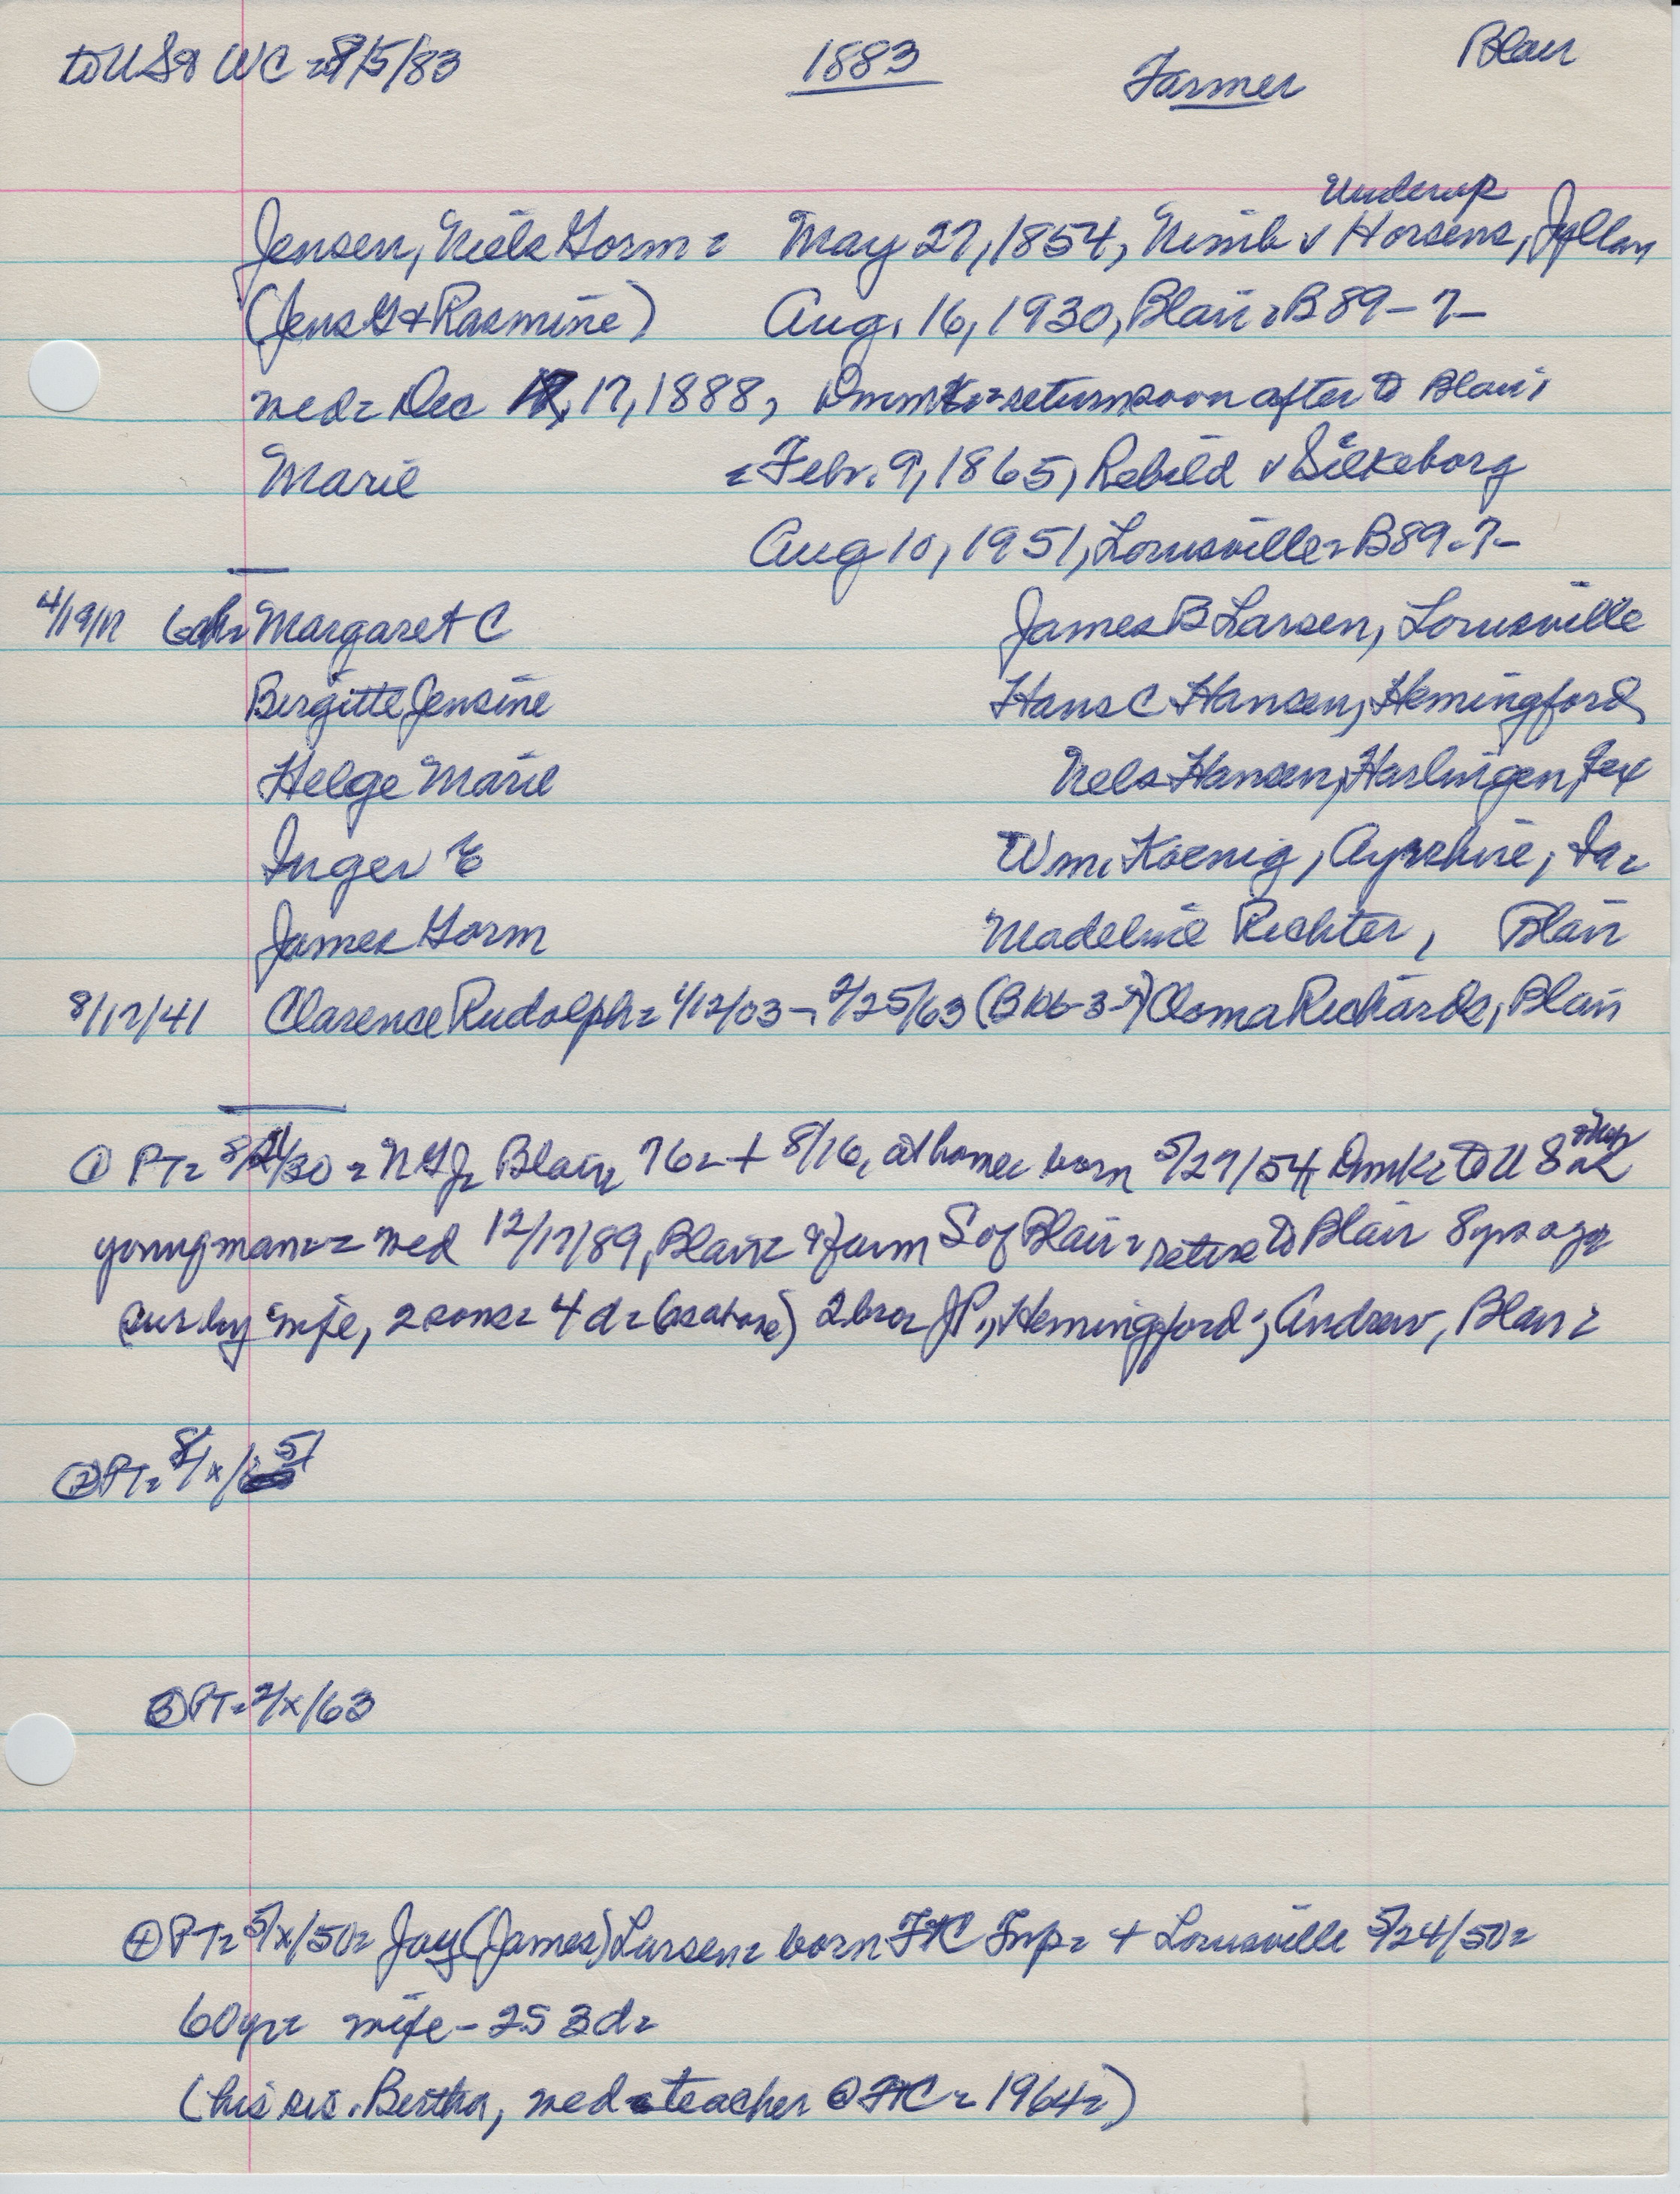 to US & WC = 8/5/83 1883 Farmer Blair
Underup
Jensen, Niels Gorm = May 27, 1854, Nimb v Horsens, Jyllan
(Jens G & Rasmine) Aug. 16, 1930, Blair = B89-7-
wed = Dec 17, 1888, Dnmk = return soon after to Blair
Marie = Febr. 9, 1865, Rebild v Silkeborg
Aug 10, 1951, Louisville = B89-7-
4/19/17 6 ch = Margaret C James B Larsen, Louisville
Birgitte Jensine Hans C Hansen, Hemingford
Helge Marie Nels Hansen, Harlingen, Tex
Inger E Wm. Koenig, Ayrshire, Ia =
James Gorm Madeline Richter, Blair
8/17/41 Clarence Rudolph = 1/12/03 - 2/25/63 (B106-3-) Cloma Richards, Blair
① PT = 8/21/30 = NGJ = Blair, 76 = + 8/16, at home = born 5/27/54 Dnmk = to US as
young man = = wed 12/17/89, Blair = & farm S of Blair = retire to Blair 8 yrs ago
sur by wife, 2 sons = 4 d = (as above) 2 bro = JP., Hemingford; Andrew, Blair =
② PT = 8/x/51
③ PT = 2/x/63
④ PT = 5/x/50 = Jay (James) Larsen = born FtC Twp = + Louisville 5/24/50 =
60 yr = wife - 2 S 3 d =
(his sis. Bertha, wed = teacher @ FtC = 1964 =)